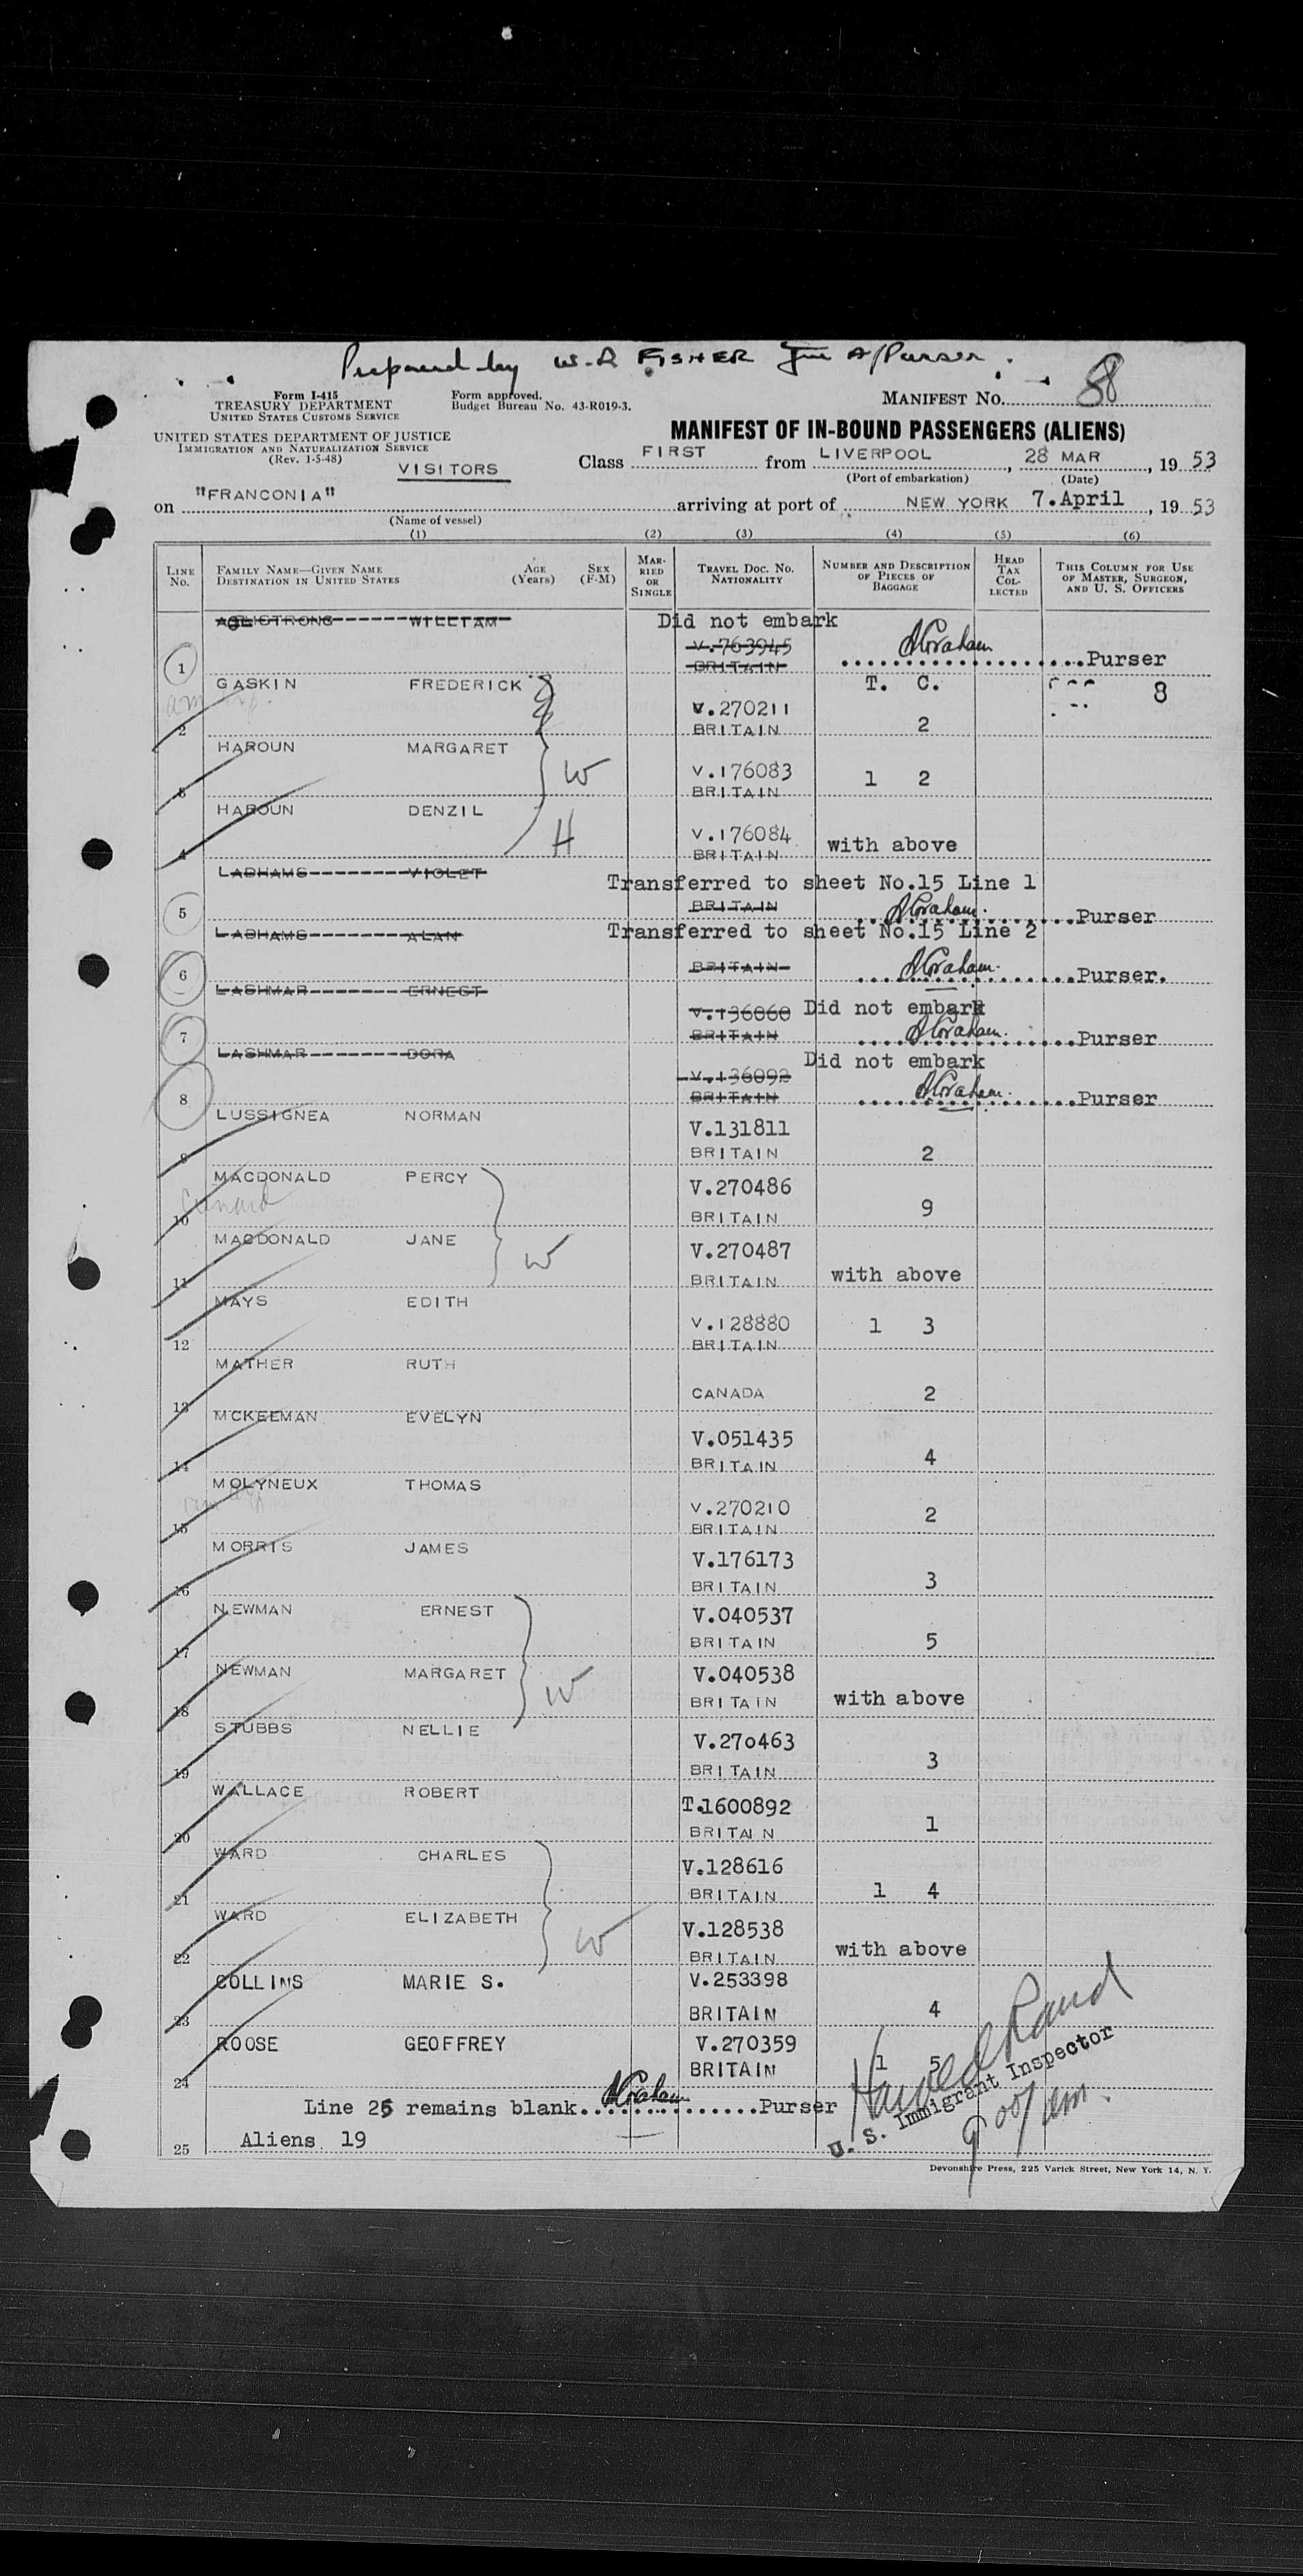 Prepared by W.R FISHER Jnr A/Purser.
Form I-415
TREASURY DEPARTMENT
UNITED STATES CUSTOMS SERVICE
Form approved.
Budget Bureau No. 43-R019-3.
MANIFEST No. 88
UNITED STATES DEPARTMENT OF JUSTICE
IMMIGRATION AND NATURALIZATION SERVICE
(Rev. 1-5-48)
MANIFEST OF IN-BOUND PASSENGERS (ALIENS)
VISITORS
Class FIRST from LIVERPOOL, 28 MAR, 19 53
(Port of embarkation) (Date)
on "FRANCONIA" arriving at port of NEW YORK 7.April, 19 53
(Name of vessel)
(1) (2) (3) (4) (5) (6)
LINE No. FAMILY NAME—GIVEN NAME DESTINATION IN UNITED STATES AGE (Years) SEX (F-M) MARRIED OR SINGLE TRAVEL DOC. No. NATIONALITY NUMBER AND DESCRIPTION OF PIECES OF BAGGAGE HEAD TAX COLLECTED THIS COLUMN FOR USE OF MASTER, SURGEON, AND U. S. OFFICERS
ARMSTRONG WILLIAM Did not embark
V.763945
1 BRITAIN Purser
GASKIN FREDERICK T. C. 8
V.270211
2 BRITAIN 2
HAROUN MARGARET W
V.176083 1 2
3 BRITAIN
HAROUN DENZIL H
V.176084 with above
4 BRITAIN
LADHAMS VIOLET Transferred to sheet No.15 Line 1
5 BRITAIN Purser
LADHAMS ALAN Transferred to sheet No.15 Line 2
6 BRITAIN Purser.
LASHMAR ERNEST
V.136060 Did not embark
7 BRITAIN Purser
LASHMAR DORA Did not embark
V.136092
8 BRITAIN Purser
LUSSIGNEA NORMAN
V.131811
9 BRITAIN 2
MACDONALD PERCY
V.270486
10 Cunard BRITAIN 9
MACDONALD JANE W
V.270487
11 BRITAIN with above
MAYS EDITH
V.128880 1 3
12 BRITAIN
MATHER RUTH
13 CANADA 2
MCKEEMAN EVELYN
V.051435
14 BRITAIN 4
MOLYNEUX THOMAS
V.270210
15 BRITAIN 2
MORRIS JAMES
V.176173
16 BRITAIN 3
NEWMAN ERNEST
V.040537
17 BRITAIN 5
NEWMAN MARGARET W
V.040538
18 BRITAIN with above
STUBBS NELLIE
V.270463
19 BRITAIN 3
WALLACE ROBERT
T.1600892
20 BRITAIN 1
WARD CHARLES
V.128616
21 BRITAIN 1 4
WARD ELIZABETH W
V.128538
22 BRITAIN with above
COLLINS MARIE S.
V.253398
23 BRITAIN 4
ROOSE GEOFFREY
V.270359
24 BRITAIN 1 5
Harold Rand
U. S. Immigrant Inspector
9 00/ am.
Line 25 remains blank Purser
25 Aliens 19
Devonshire Press, 225 Varick Street, New York 14, N. Y.